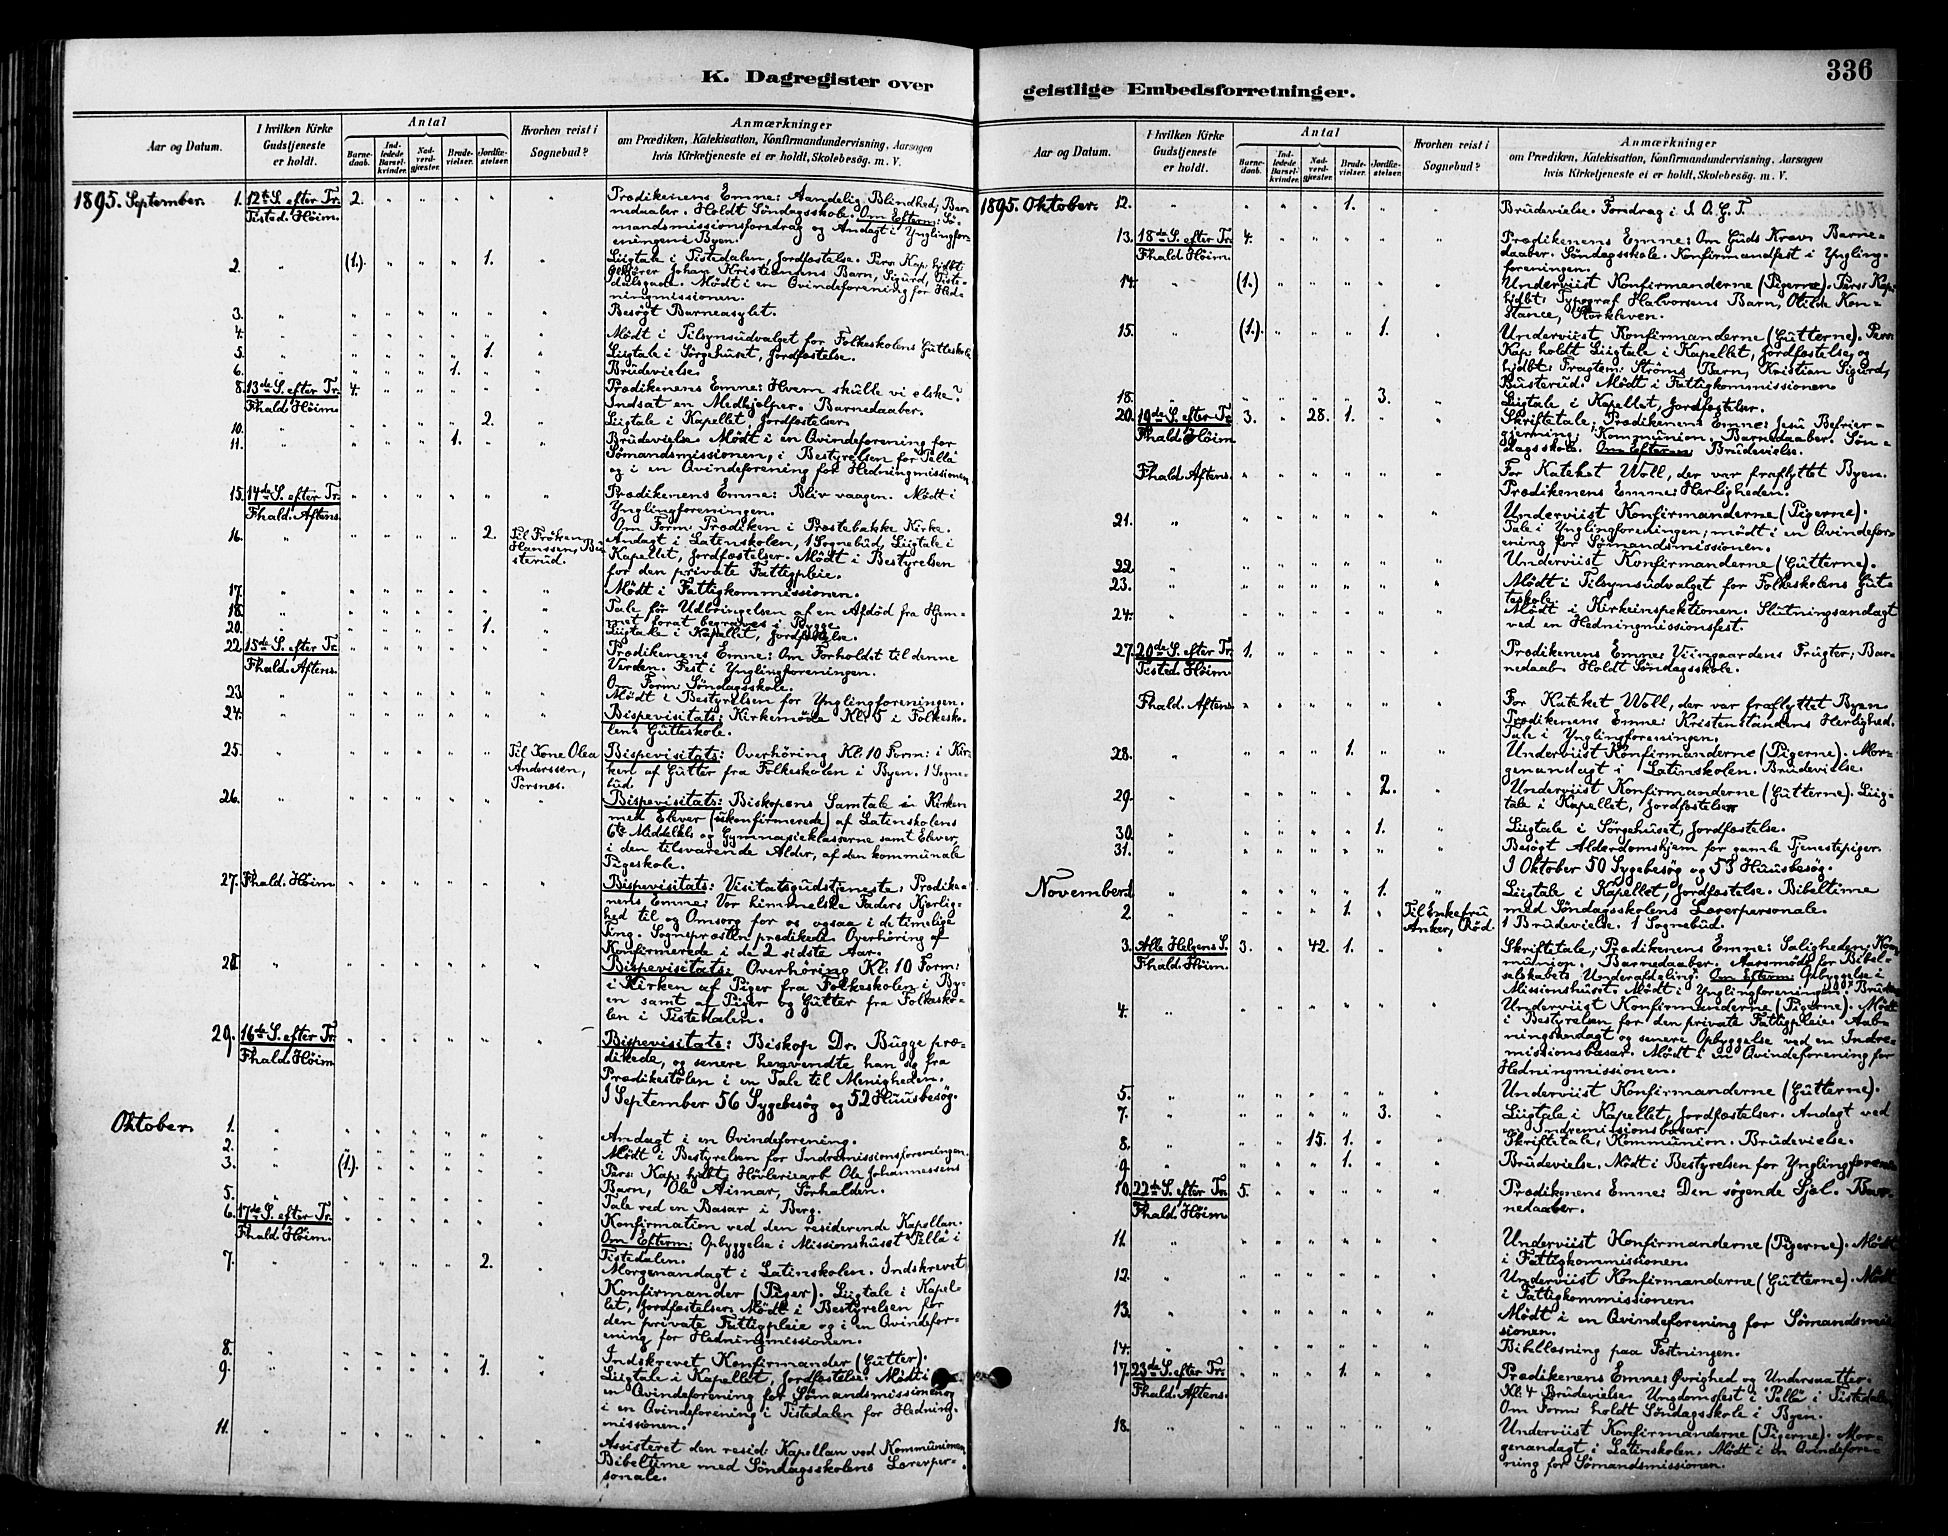 K. Dagregister over
Aar og Datum.
I hvilken Kirke Gudstjeneste er holdt.
Antal
Barnedaab.
Indledede Barselkvinder.
Nadverdgjæster.
Brudevielser.
Jordfæstelser.
Hvorhen reist i Sognebud?
Anmærkninger
om Prædiken, Katekisation, Konfirmandundervisning, Aarsagen
hvis Kirketjeneste ei er holdt, Skolebesög. m. V.
1895. September. 1. 12te S. efter Tr. 2. Prædikenens Emne: Aandelig Blindhed; Bar-
Tisted. Høim. nedaaber. Holdt Søndagsskole. Om Efterm: Sø-
mandsmissionsforedrag og Andagt i Ynglingfor-
eningen i Byen.
2. (1.) 1. Liigtale i Tistedalen, Jordfæstelse. Pers. Kap. hjdbt
Johan Kristiansens Barn, Sigurd, Tiste-
dalsgade. Mödt i en Qvindeforening for Hed-
ningmissionen.
3. Besögt Barneasylet.
4. Mödt i Tilsynsudvalget for Folkeskolens Gutteskole
5. 1. Liigtale i Sørgehuset, Jordfæstelse.
6. 1. Brudevielse.
8. 13de S. efter Tr. 4. Prædikenens Emne: Hvem skulle vi elske?
Fhald. Høim. Indsat en Medhjælper. Barnedaaber.
10. 2. Liigtale i Kapellet, Jordfæstelser.
11. 1. Brudevielse. Mödt i en Qvindeforening for
Sømandsmissionen, i Bestyrelsen for "Pella"
og i en Qvindeforening for Hedningmissionen
15. 14de S. efter Tr. Prædikenens Emne: Bliv vaagen. Mödt i
Fhald. Aftens. Ynglingforeningen.
Om Form: Prædiken i Præstebakke Kirke.
16. 2. Til Frøken Andagt i Latinskolen, 1 Sognebud, Liigtale i
Hanssens Bu- Kapellet, Jordfæstelser. Mödt i Bestyrelsen
sterud. for den private Fattigpleie.
17. Mödt i Fattigkommissionen.
18. Tale før Udbringelsen af en Afdød fra Hjem-
met forat begraves i Rygge.
20. 1. Liigtale i Kapellet, Jordfæstelse.
22. 15de S. efter Tr. Prædikenens Emne: Om Forholdet til denne
Fhald. Aftens. Verden. Fest i Ynglingforeningen.
Om Form: Søndagsskole.
23. Mödt i Bestyrelsen for Ynglingforeningen.
24. Bispevisitats: Kirkemøde Kl. 5 i Folkesko-
lens Gutteskole.
25. Til Kone Olea Bispevisitats: Overhöring Kl. 10 Form: i Kir-
Anderssen, ken af Gutter fra Folkeskolen i Byen. 1 Sogne-
Torsnæs. bud.
26. Bispevisitats: Biskopens Samtale i Kirken
med Elever (ukonfirmerede) af Latinskolens
6te Middelkl. og Gymnasieklasserne samt Elever,
i den tilsvarende Alder, af den kommunale
Pigeskole.
27. Fhald. Høim. Bispevisitats: Visitatsgudstjeneste: Prædike-
nens Emne: Vor himmelske Faders Kjærlig-
hed til og Omsorg for os ogsaa i de timelige
Ting. Sognepræsten prædikede. Overhöring af
Konfirmerede i de 2 sidste Aar.
28. Bispevisitats: Overhöring Kl. 10 Form:
i Kirken af Piger fra Folkeskolen i By-
en samt af Piger og Gutter fra Folkesko-
len i Tistedalen.
29. 16de S. efter Tr. Bispevisitats: Biskop Dr. Bugge præ-
Fhald. Høim. dikede, og senere henvendte han sig fra
Prædikestolen i en Tale til Menigheden.
I September 56 Sygebesög og 52 Huusbesög.
Oktober. 1. Andagt i en Qvindeforening.
2. Mödt i Bestyrelsen for Indremissionsforeningen.
3. (1.) Pers: Kap. hjdbt Høvleriearb Ole Johannessens
Barn, Ole Aimar, Sørhalden.
5. Tale ved en Basar i Berg.
6. 17de S. efter Tr. Konfirmation ved den residerende Kapellan.
Fhald. Høim. Om Efterm: Opbyggelse i Missionshuset "Pella" i
Tistedalen.
7. 2. Morgenandagt i Latinskolen. Indskrevet
Konfirmander (Piger). Liigtale i Kapel-
let, Jordfæstelser. Mödt i Bestyrelsen for
den private Fattigpleie og i en Qvindefor-
ening for Hedningmissionen.
8. Indskrevet Konfirmander (Gutter).
9. 1. Liigtale i Kapellet, Jordfæstelse. Mödt i
en Qvindeforening for Sømandsmissionen og
i en Qvindeforening i Tistedalen for Hedning-
missionen.
11. Assisteret den resid: Kapellan ved Kommunionen
Bibeltime med Søndagsskolens Lærerper-
sonale.
336
geistlige Embedsforretninger.
Aar og Datum.
I hvilken Kirke Gudstjeneste er holdt.
Antal
Barnedaab.
Indledede Barselkvinder.
Nadverdgjæster.
Brudevielser.
Jordfæstelser.
Hvorhen reist i Sognebud?
Anmærkninger
om Prædiken, Katekisation, Konfirmandundervisning, Aarsagen
hvis Kirketjeneste ei er holdt, Skolebesög. m. V.
1895. Oktober. 12. 1. Brudevielse. Foredrag i I. O. G. T.
13. 18de S. efter Tr. 4. Prædikenens Emne: Om Guds Krav. Barne-
Fhald. Høim. daaber. Søndagsskole. Konfirmandfest i Yngling-
foreningen.
14. (1.) Underviist Konfirmanderne (Pigerne). Pers: Kap.
hjdbt: Typograf Halvorsens Barn, Otilde Kon-
stance, Storkleven.
15. (1.) 1. Underviist Konfirmanderne (Gutterne). Pers:
Kap holdt Liigtale i Kapellet, Jordfæstelse, og
hjdbt: Fragtem: Krøms Barn, Kristian Sigurd,
Busterud. Mödt i Fattigkommissionen
18. 3. Liigtale i Kapellet, Jordfæstelser.
20. 19de S. efter Tr. 3. 28. 1. Skriftetale, Prædikenens Emne: Jesu Befrier-
Fhald Høim gjerning; Kommunion, Barnedaaber. Søn-
dagsskole. Om Efterm: Brudevielse.
Fhald Aftens. For Kateket Woll, der var fraflyttet Byen.
Prædikenens Emne: Herligheden.
21. Underviist Konfirmanderne (Pigerne).
Tale i Ynglingforeningen; mödt i en Qvindefor-
ening for Sømandsmissionen.
22. Underviist Konfirmanderne (Gutterne).
23. Mödt i Tilsynsudvalget for Folkeskolens Gut-
teskole.
24. Mödt i Kirkeinspektionen. Slutningsandagt
ved en Hedningmissionsfest.
27. 20de S. efter Tr. 1. Prædikenens Emne: Viingaardens Frugter; Bar-
Tisted. Høim. nedaab. Holdt Søndagsskole.
Fhald. Aftens. For Kateket Woll, der var fraflyttet Byen
Prædikenens Emne: Kristenstandens Herlighed.
Tale i Ynglingforeningen.
28. 1. Underviist Konfirmanderne (Pigerne). Mor-
genandagt i Latinskolen. Brudevielse.
29. 2. Underviist Konfirmanderne (Gutterne). Liig-
tale i Kapellet, Jordfæstelser
30. 1. Liigtale i Sørgehuset, Jordfæstelse.
31. Besögt Alderdomshjem for gamle Tjenestepiger.
I Oktober 50 Sygebesög og 53 Huusbesög.
November. 1. 1. Liigtale i Kapellet, Jordfæstelse. Bibeltime
med Søndagsskolens Lærerpersonale.
2. 1. Til Enkefru 1 Brudevielse. 1 Sognebud.
Anker, Rød.
3. Alle Helgens S. 3. 42. 1. Skriftetale, Prædikenens Emne: Saligheden; Kom-
Fhald. Høim. munion, Barnedaaber. Aarsmöde for Bibel-
selskabets Underafdeling. Om Efterm: Opbyggelse i
Missionshuset. Mödt i Ynglingforeningen.
4. Underviist Konfirmanderne (Pigerne). Mödt
i Bestyrelsen for den private Fattigpleie. Aab-
ningsandagt og senere Opbyggelse ved en Indre-
missionsbasar. Mödt i en Qvindeforening for
Hedningmissionen.
5. Underviist Konfirmanderne (Gutterne).
7. 3. Liigtale i Kapellet, Jordfæstelser. Andagt ved
en Indremissionsbasar.
8. 15. 1. Skriftetale, Kommunion. Brudevielse.
9. 1. Brudevielse. Mödt i Bestyrelsen for Ynglingforene
10. 22de S. efter Tr. 5. Prædikenens Emne: Den søgende Sjæl. Bar-
Fhald. Høim. nedaaber.
11. Underviist Konfirmanderne (Pigerne). Mödt
i Fattigkommissionen.
12. Underviist Konfirmanderne (Gutterne). Mödt
i Fattigkommissionen.
13. Mödt i en Qvindeforening for Sømandsmis-
sionen.
14. Bibellæsning paa Fæstningen.
17. 23de S. efter Tr. 1. Prædikenens Emne: Øvrighed og Undersaatter.
Fhald. Aftens. Kl. 4 Brudevielse. Ungdomsfest i "Pella" i Tistedalen
Om Form: holdt Søndagsskole i Byen.
18. Underviist Konfirmanderne (Pigerne). Mor-
genandagt i Latinskolen. Mödt i en Qvindefore-
ning for Sømandsmissionen.